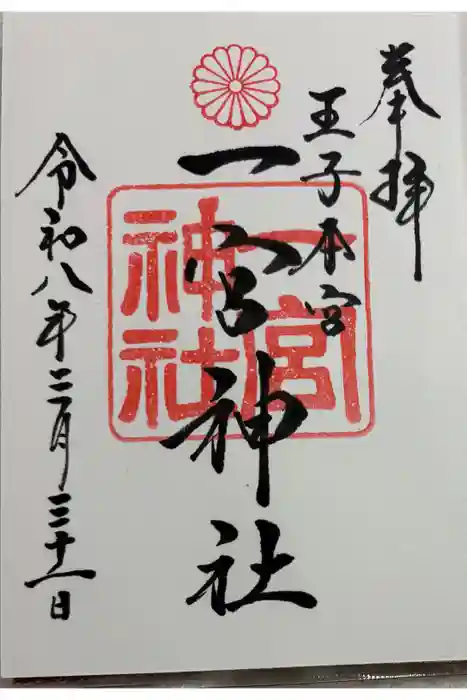 奉拝
王子本宮
一宮神社
一宮
神社
令和八年三月三十一日